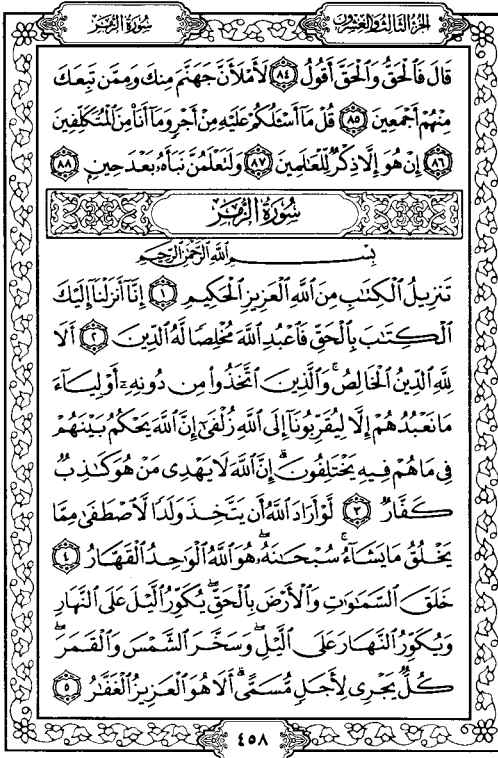 الجزء الثالث والعشرون
سورة الزمر
قَالَ فَٱلْحَقُّ وَٱلْحَقَّ أَقُولُ ٨٤ لَأَمْلَأَنَّ جَهَنَّمَ مِنكَ وَمِمَّن تَبِعَكَ
مِنْهُمْ أَجْمَعِينَ ٨٥ قُلْ مَآ أَسْـَٔلُكُمْ عَلَيْهِ مِنْ أَجْرٍ وَمَآ أَنَا۠ مِنَ ٱلْمُتَكَلِّفِينَ
٨٦ إِنْ هُوَ إِلَّا ذِكْرٌ لِّلْعَـٰلَمِينَ ٨٧ وَلَتَعْلَمُنَّ نَبَأَهُۥ بَعْدَ حِينِۭ ٨٨
سُورَةُ الزُّمَرِ
بِسْمِ ٱللَّهِ ٱلرَّحْمَـٰنِ ٱلرَّحِيمِ
تَنزِيلُ ٱلْكِتَـٰبِ مِنَ ٱللَّهِ ٱلْعَزِيزِ ٱلْحَكِيمِ ١ إِنَّآ أَنزَلْنَآ إِلَيْكَ
ٱلْكِتَـٰبَ بِٱلْحَقِّ فَٱعْبُدِ ٱللَّهَ مُخْلِصًا لَّهُ ٱلدِّينَ ٢ أَلَا
لِلَّهِ ٱلدِّينُ ٱلْخَالِصُ ۚ وَٱلَّذِينَ ٱتَّخَذُوا۟ مِن دُونِهِۦٓ أَوْلِيَآءَ
مَا نَعْبُدُهُمْ إِلَّا لِيُقَرِّبُونَآ إِلَى ٱللَّهِ زُلْفَىٰٓ إِنَّ ٱللَّهَ يَحْكُمُ بَيْنَهُمْ
فِى مَا هُمْ فِيهِ يَخْتَلِفُونَ ۗ إِنَّ ٱللَّهَ لَا يَهْدِى مَنْ هُوَ كَـٰذِبٌ
كَفَّارٌ ٣ لَّوْ أَرَادَ ٱللَّهُ أَن يَتَّخِذَ وَلَدًا لَّٱصْطَفَىٰ مِمَّا
يَخْلُقُ مَا يَشَآءُ ۚ سُبْحَـٰنَهُۥ ۖ هُوَ ٱللَّهُ ٱلْوَٰحِدُ ٱلْقَهَّارُ ٤
خَلَقَ ٱلسَّمَـٰوَٰتِ وَٱلْأَرْضَ بِٱلْحَقِّ ۖ يُكَوِّرُ ٱلَّيْلَ عَلَى ٱلنَّهَارِ
وَيُكَوِّرُ ٱلنَّهَارَ عَلَى ٱلَّيْلِ ۖ وَسَخَّرَ ٱلشَّمْسَ وَٱلْقَمَرَ ۖ
كُلٌّ يَجْرِى لِأَجَلٍ مُّسَمًّى ۗ أَلَا هُوَ ٱلْعَزِيزُ ٱلْغَفَّـٰرُ ٥
٤٥٨